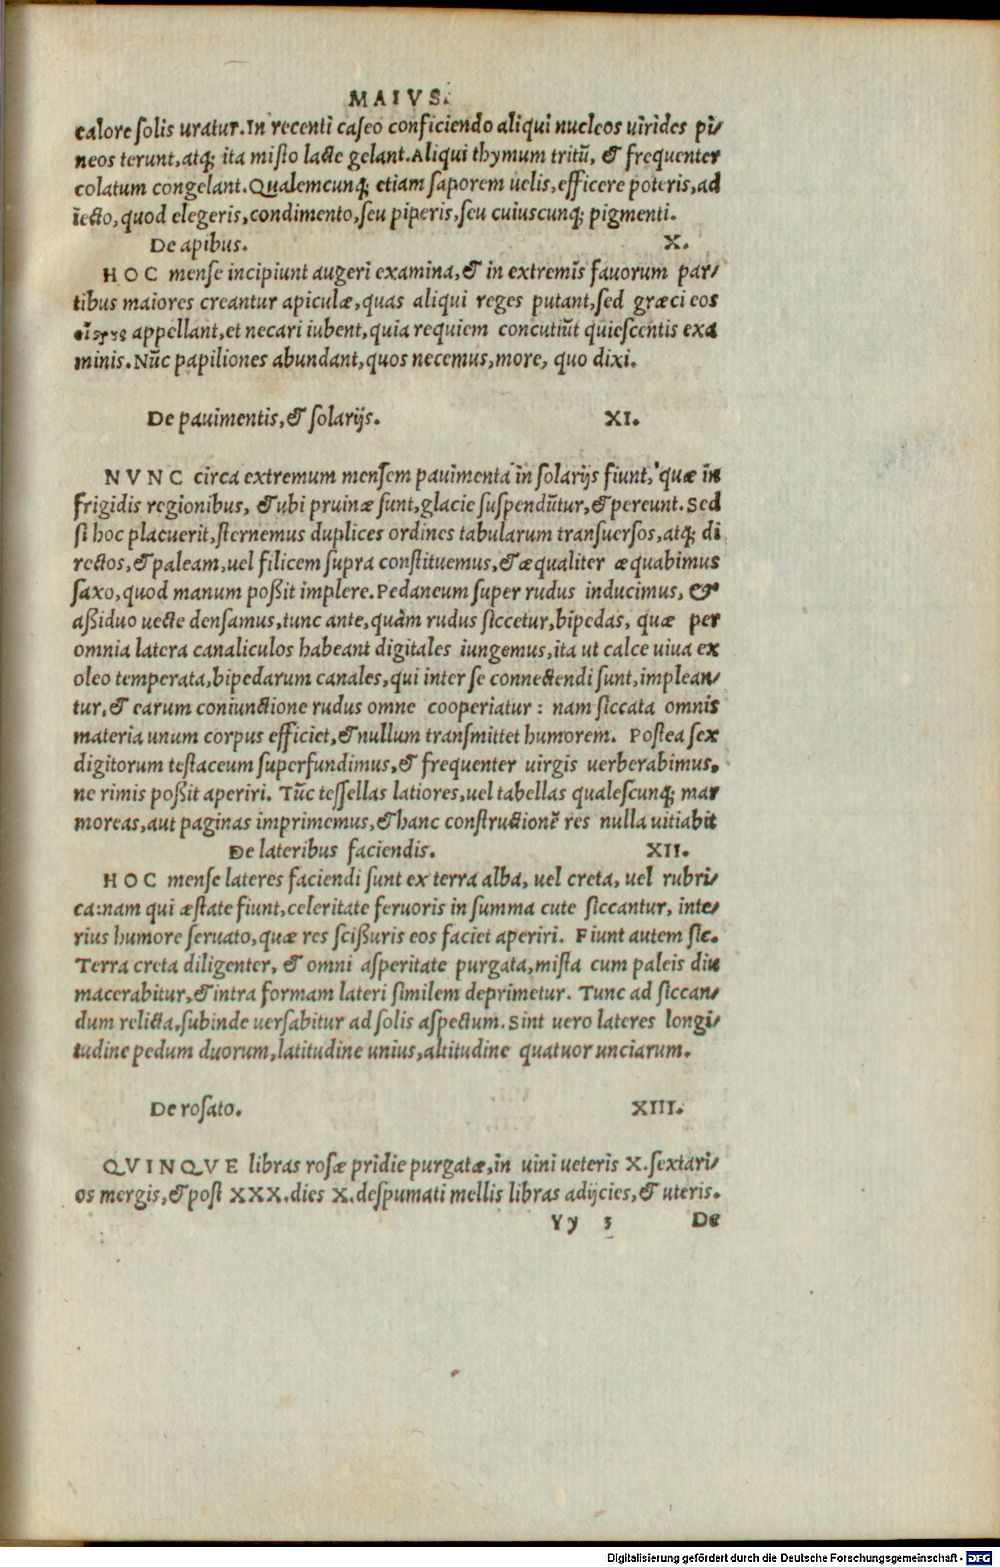 MAIVS.
calore solis uratur. In recenti caseo conficiendo aliqui nucleos uirides pi/
neos terunt, atq; ita misto lacte gelant. Aliqui thymum tritū, & frequenter
colatum congelant. Qualemcunq; etiam saporem uelis, efficere poteris, ad
iecto, quod elegeris, condimento, seu piperis, seu cuiuscunq; pigmenti.
De apibus. X.
HOC mense incipiunt augeri examina, & in extremis fauorum par/
tibus maiores creantur apiculæ, quas aliqui reges putant, sed græci eos
οἴςρους appellant, et necari iubent, quia requiem concutiūt quiescentis exa
minis. Nūc papiliones abundant, quos necemus, more, quo dixi.
De pauimentis, & solarijs. XI.
NVNC circa extremum mensem pauimenta in solarijs fiunt, quæ in
frigidis regionibus, & ubi pruinæ sunt, glacie suspendūtur, & pereunt. Sed
si hoc placuerit, sternemus duplices ordines tabularum transuersos, atq; di
rectos, & paleam, uel filicem supra constituemus, & æqualiter æquabimus
saxo, quod manum poßit implere. Pedaneum super rudus inducimus, &
aßiduo uecte densamus, tunc ante, quàm rudus siccetur, bipedas, quæ per
omnia latera canaliculos habeant digitales iungemus, ita ut calce uiua ex
oleo temperata, bipedarum canales, qui inter se connectendi sunt, implean/
tur, & earum coniunctione rudus omne cooperiatur: nam siccata omnis
materia unum corpus efficiet, & nullum transmittet humorem. Postea sex
digitorum testaceum superfundimus, & frequenter uirgis uerberabimus,
ne rimis poßit aperiri. Tūc tessellas latiores, uel tabellas qualescunq; mar
moreas, aut paginas imprimemus, & hanc constructionē res nulla uitiabit
De lateribus faciendis. XII.
HOC mense lateres faciendi sunt ex terra alba, uel creta, uel rubri/
ca: nam qui æstate fiunt, celeritate feruoris in summa cute siccantur, inte/
rius humore seruato, quæ res scißuris eos faciet aperiri. Fiunt autem sic.
Terra creta diligenter, & omni asperitate purgata, mista cum paleis diu
macerabitur, & intra formam lateri similem deprimetur. Tunc ad siccan/
dum relicta, subinde uersabitur ad solis aspectum. Sint uero lateres longi/
tudine pedum duorum, latitudine unius, altitudine quatuor unciarum.
De rosato. XIII.
QVINQVE libras rosæ pridie purgatæ, in uini ueteris X. sextari/
os mergis, & post XXX. dies X. despumati mellis libras adijcies, & uteris.
Yy 3 De
Digitalisierung gefördert durch die Deutsche Forschungsgemeinschaft - DFG